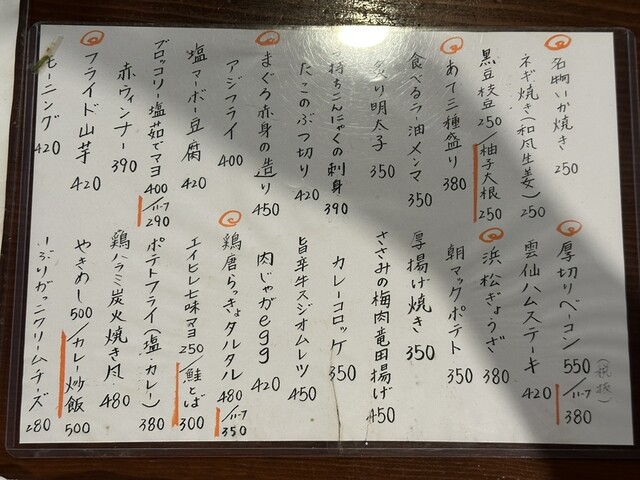 名物いか焼き 250
ネギ焼き(和風生姜) 250
黒豆枝豆 250/柚子大根 250
あて三種盛り 380
食べるラー油メンマ 350
炙り明太子 350
子持ちこんにゃくの刺身 390
たこのぶつ切り 420
まぐろ赤身の造り 450
アジフライ 400
塩マーボー豆腐 420
ブロッコリー塩茹でマヨ 400/ハーフ 290
赤ウィンナー 390
フライド山芋 420
ニング 420
厚切りベーコン 550/ハーフ 380
(税抜)
雲仙ハムステーキ 420
浜松ぎょうざ 380
朝マックポテト 350
厚揚げ焼き 350
ささみの梅肉竜田揚げ 450
カレーコロッケ 350
旨辛牛スジオムレツ 450
肉じゃがegg 420
鶏唐らっきょタルタル 480/ハーフ 350
エイヒレ七味マヨ 250/鮭とば 300
ポテトフライ(塩、カレー) 380
鶏ハラミ炭火焼き風 480
やきめし 500/カレー炒飯 500
いぶりがっこクリームチーズ 280